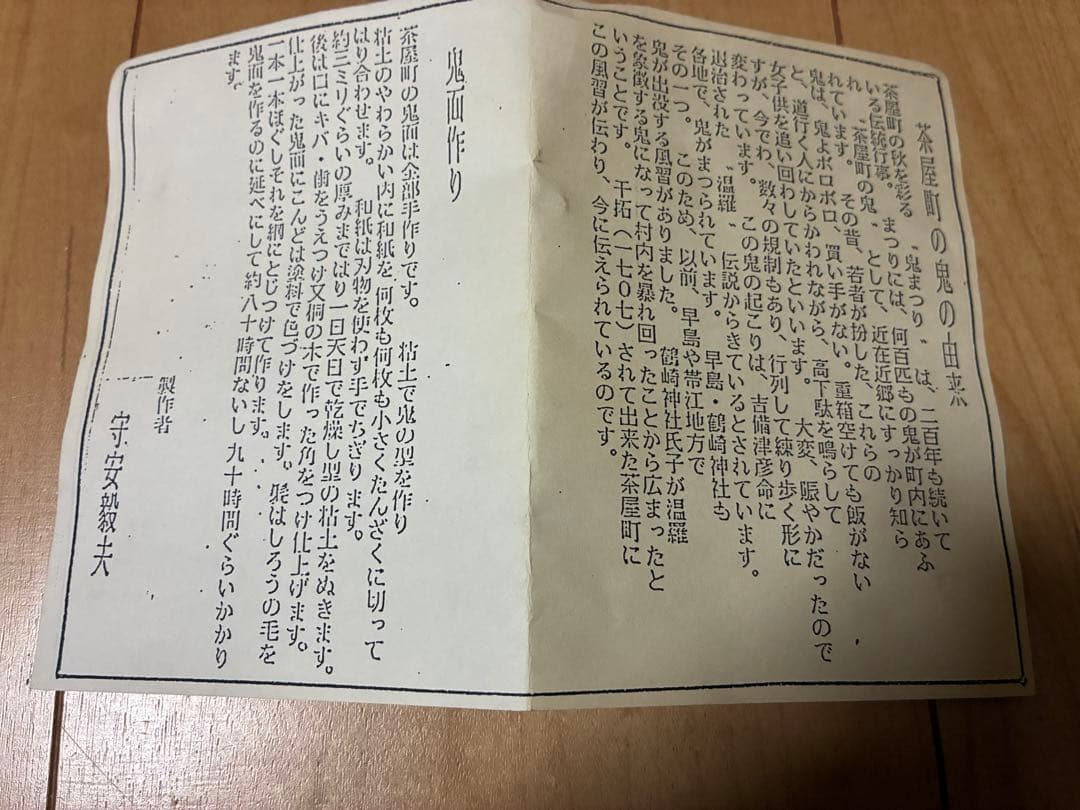 茶屋町の鬼の由来
茶屋町の秋を彩る〝鬼まつり〟は、二百年も続いて
いる伝統行事。 まつりには、何百匹もの鬼が町内にあふ
れ〝茶屋町の鬼〟として、近在近郷にすっかり知ら
れています。 その昔、若者が扮した、これらの
鬼は、鬼よボロボロ、買い手がない。重箱空けても飯がない
と、道行く人にからかわれながら、高下駄を鳴らして
女子供を追い回わしていたといいます。大変、賑やかだったので
すが、今でわ、数々の規制もあり、行列して練り歩く形に
変わっています。 この鬼の起こりは、吉備津彦命に
退治された〝温羅〟伝説からきているとされています。
各地で、鬼がまつられています。 早島・鶴崎神社も
その一つ。 このため、以前、早島や帯江地方で
鬼が出没する風習がありました。 鶴崎神社氏子が温羅
を象徴する鬼になって村内を暴れ回ったことから広まったと
いうことです。 干拓（一七〇七）されて出来た茶屋町に
この風習が伝わり、今に伝えられているのです。
鬼面作り
茶屋町の鬼面は全部手作りです。 粘土で鬼の型を作り
粘土のやわらかい内に和紙を 何枚も何枚も小さくたんざくに切って
はり合わせます。 和紙は刃物を使わず手でちぎります。
約三ミリぐらいの厚みまではり一日天日で乾燥し型の粘土をぬきます。
後は口にキバ・歯をうえつけ又桐の木で作った角をつけ仕上げます。
仕上がった鬼面にこんどは塗料で色づけをします。髪はしろうの毛を
一本一本ほぐしそれを網にとじつけて作ります。
鬼面を作るのに延べにして約八十時間ないし九十時間ぐらいかかり
ます。
製作者
守安 夫